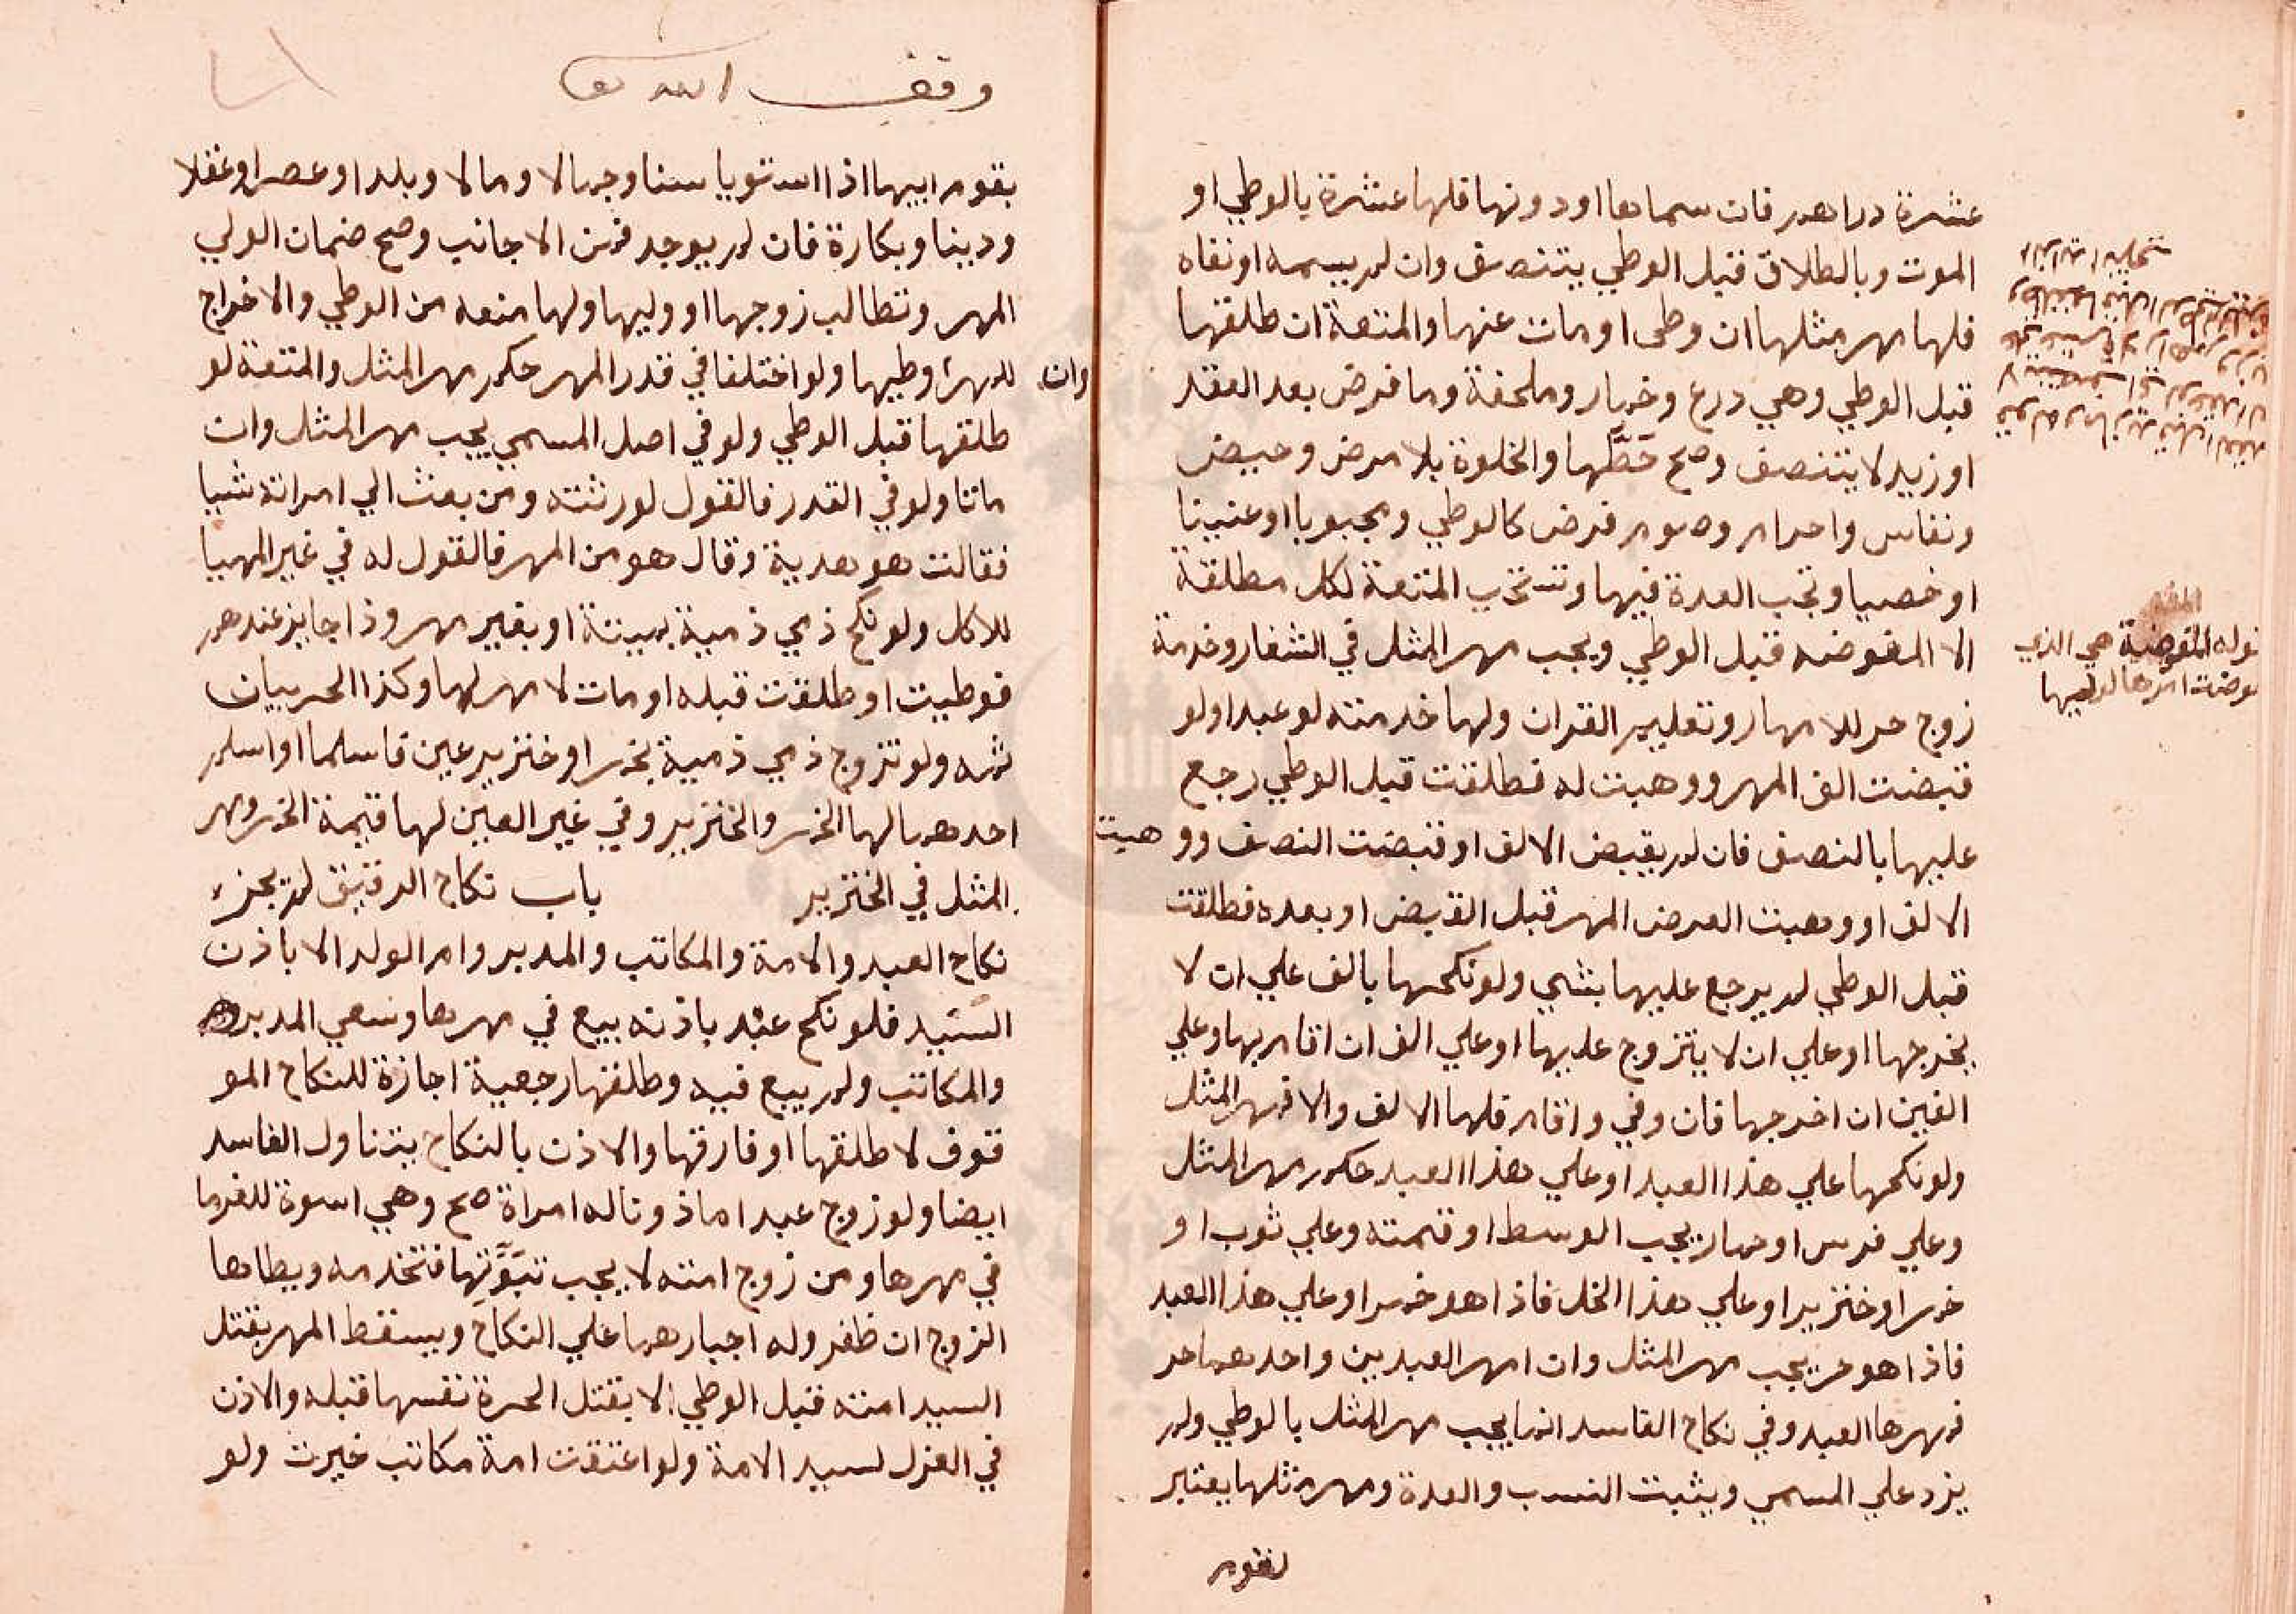 عشرة دراهم فان سماها او دونها فلها عشرة بالوطي او
الموت وبالطلاق قبل الوطي يتنصف وان لم يسمه او نفاه
فلها مهر مثلها ان وطى او مات عنها والمتعة ان طلقها
قبل الوطي وهي درع وخمار وملحفة وما فرض بعد العقد
او زيد لا يتنصف وصح حَطُّها والخلوة بلا مرض وحيض
ونفاس واحرام وصوم فرض كالوطي ومجبوبا او عنينا
او خصيا وتجب العدة فيها وتستحب المتعة لكل مطلقة
الا المفوضه قبل الوطي ويجب مهر المثل في الشغار وخدمة
زوج حر للامهار وتعليم القران ولها خدمته لو عبدا ولو
قبضت الف المهر ووهبت له فطلقت قبل الوطي رجع
عليها بالنصف فان لم يقبض الالف او قبضت النصف ووهبت
الالف او وهبت العرض المهر قبل القبض او بعده فطلقت
قبل الوطي لم يرجع عليها بشي ولو نكحها بالف علي ان لا
يخرجها او علي ان لا يتزوج عليها او علي الف ان اقام بها وعلي
الفين ان اخرجها فان وفي واقام فلها الالف والا فمهر المثل
ولو نكحها علي هذا العبد او علي هذا العبد حكم مهر المثل
وعلي فرس او حمار يجب الوسط او قيمته وعلي ثوب او
خمر او خنزير او علي هذا الخل فاذا هو خمر او علي هذا العبد
فاذا هو حر يجب مهر المثل وان امهر العبدين واحدهما حر
فمهرها العبد وفي نكاح الفاسد انما يجب مهر المثل بالوطي ولم
يزد علي المسمي ويثبت النسب والعدة ومهر مثلها يعتبر
بقوم
قوله المفوضة هي الذي
فوضت امرها لوليها
وقف الله تع
بقوم ابيها اذا استويا سنا وجمالا ومالا وبلدا وعصرا وعقلا
ودينا وبكارة فان لم يوجد فمن الاجانب وصح ضمان الولي
المهر وتطالب زوجها او وليها ولها منعه من الوطي والاخراج
للمهر وان وطيها ولو اختلفا في قدر المهر حكم مهر المثل والمتعة لو
طلقها قبل الوطي ولو في اصل المسمي يجب مهر المثل وان
ماتا ولو في القدر فالقول لورثته ومن بعث الي امراته شيا
فقالت هو هدية وقال هو من المهر فالقول له في غير المهيا
للاكل ولو نكح ذمي ذمية بميتة او بغير مهر وذا جايز عندهم
فوطيت او طلقت قبله او مات لا مهر لها وكذا الحربيان
ثمه ولو تزوج ذمي ذمية بخمر او خنزير عين فاسلما او اسلم
احدهما لها الخمر والخنزير وفي غير العين لها قيمة الخمر ومهر
المثل في الخنزير باب نكاح الرقيق لم يجز
نكاح العبد والامة والمكاتب والمدبر وام الولد الا باذن
السيد فلو نكح عبد باذنه بيع في مهرها وسعي المدبر
والمكاتب ولم يبع فيه وطلقها رجعية اجازة للنكاح المو
قوف لا طلقها او فارقها والاذن بالنكاح يتناول الفاسد
ايضا ولو زوج عبدا ماذونا له امراة صح وهي اسوة للغرما
في مهرها ومن زوج امته لا يجب تبوّتها فتخدمه ويطاها
الزوج ان ظفر وله اجبارهما علي النكاح ويسقط المهر بقتل
السيد امته قبل الوطي لا بقتل الحرة نفسها قبله والاذن
في العزل لسيد الامة ولو اعتقت امة مكاتب خيرت ولو